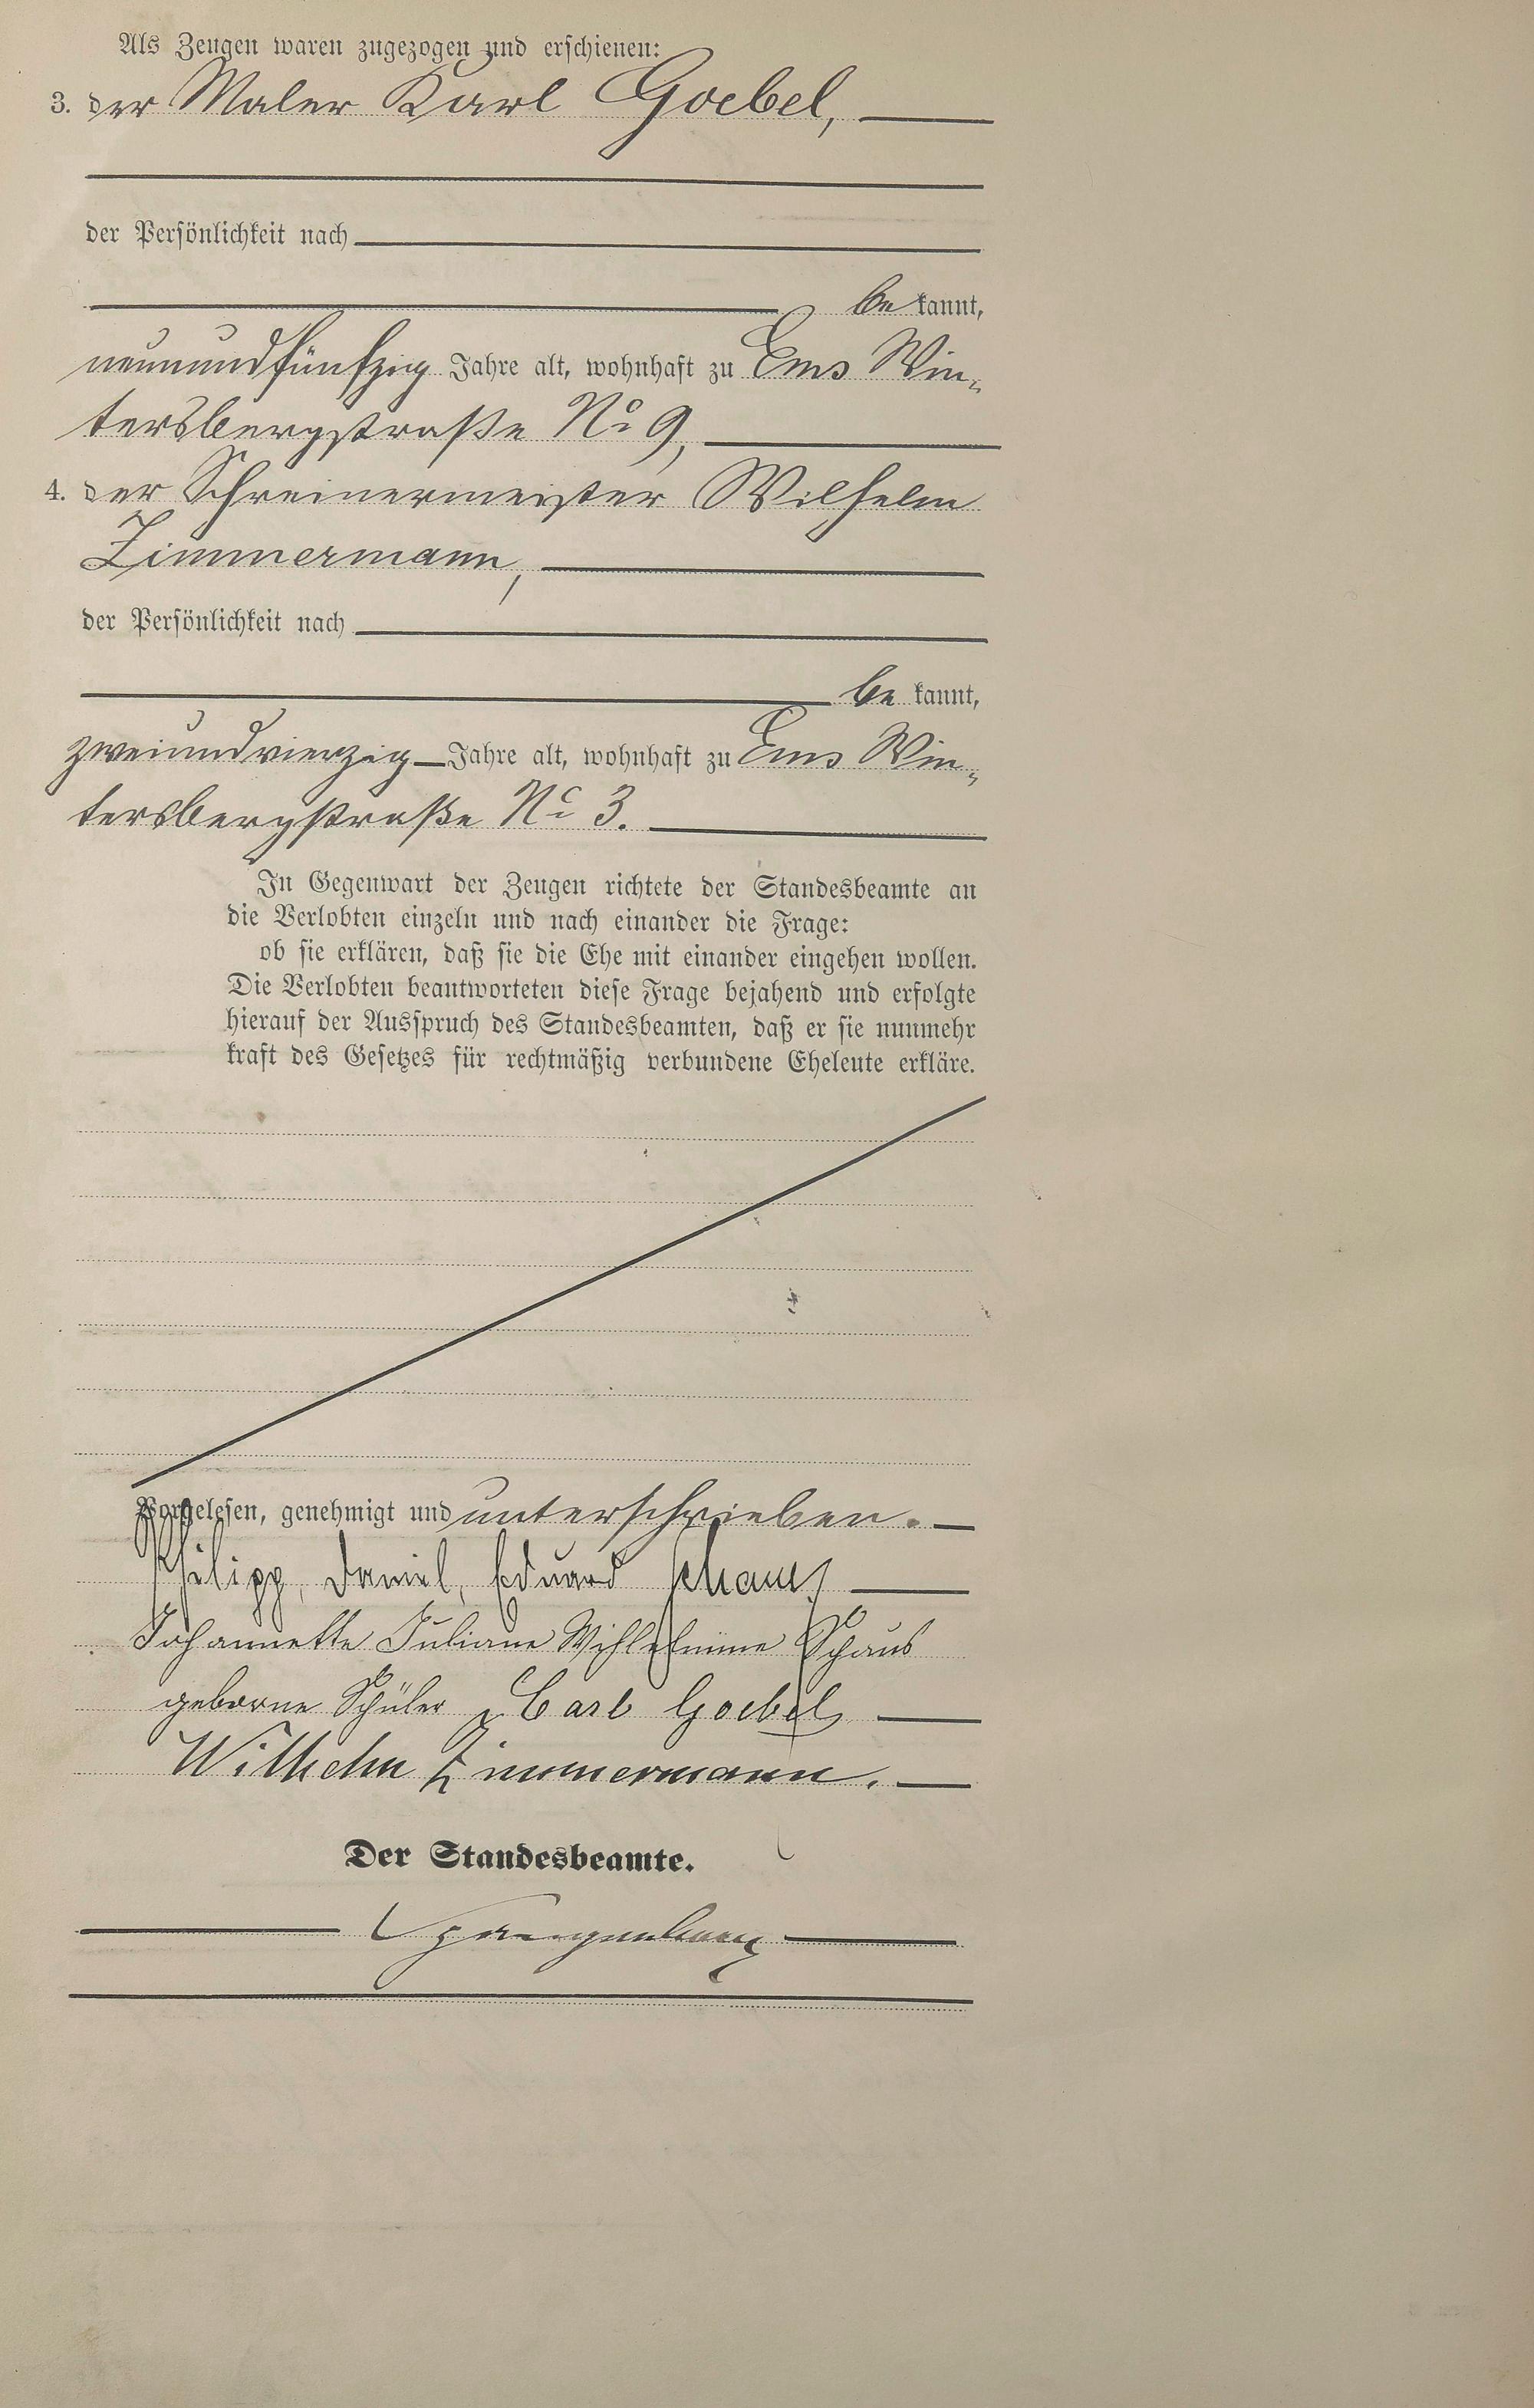 Als Zeugen waren zugezogen und erschienen:
3. der Maler Karl Goebel,
der Persönlichkeit nach
be kannt,
neunundfünfzig Jahre alt, wohnhaft zu Ems Win-
tersbergstraße No 9,
4. der Schreinermeister Wilhelm
Zimmermann,
der Persönlichkeit nach
be kannt,
zweiundvierzig Jahre alt, wohnhaft zu Ems Win-
tersbergstraße No 3.
In Gegenwart der Zeugen richtete der Standesbeamte an
die Verlobten einzeln und nach einander die Frage:
ob sie erklären, daß sie die Ehe mit einander eingehen wollen.
Die Verlobten beantworteten diese Frage bejahend und erfolgte
hierauf der Ausspruch des Standesbeamten, daß er sie nunmehr
kraft des Gesetzes für rechtmäßig verbundene Eheleute erkläre.
Vorgelesen, genehmigt und unterschrieben.
Philipp, Daniel, Eduard Schaus
Johannette Juliane Wihlelmine Schaus
geborne Schüler Carl Goebel
Wilhelm Zimmermann.
Der Standesbeamte.
Spangenberg